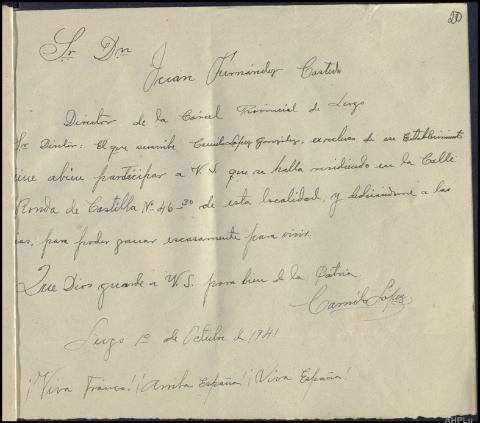 20
Sr. Dn
Juan Fernández Castedo
Director de la Cárcel Provincial de Lugo
Sr. Director: El que suscribe Camilo López González, exrecluso de ese Establecimiento
iene abien participar a V.S. que se halla residiendo en la Calle
Ronda de Castilla Nº 46-3º de esta localidad, y dedicandome a las
as, para poder ganar escasamente para vivir.
Que Dios guarde a V.S. para bien de la Patria
Camilo López
Lugo 1º de Octubre de 1941
¡Viva Franco! ¡Arriba España! ¡Viva España!
AHPLu